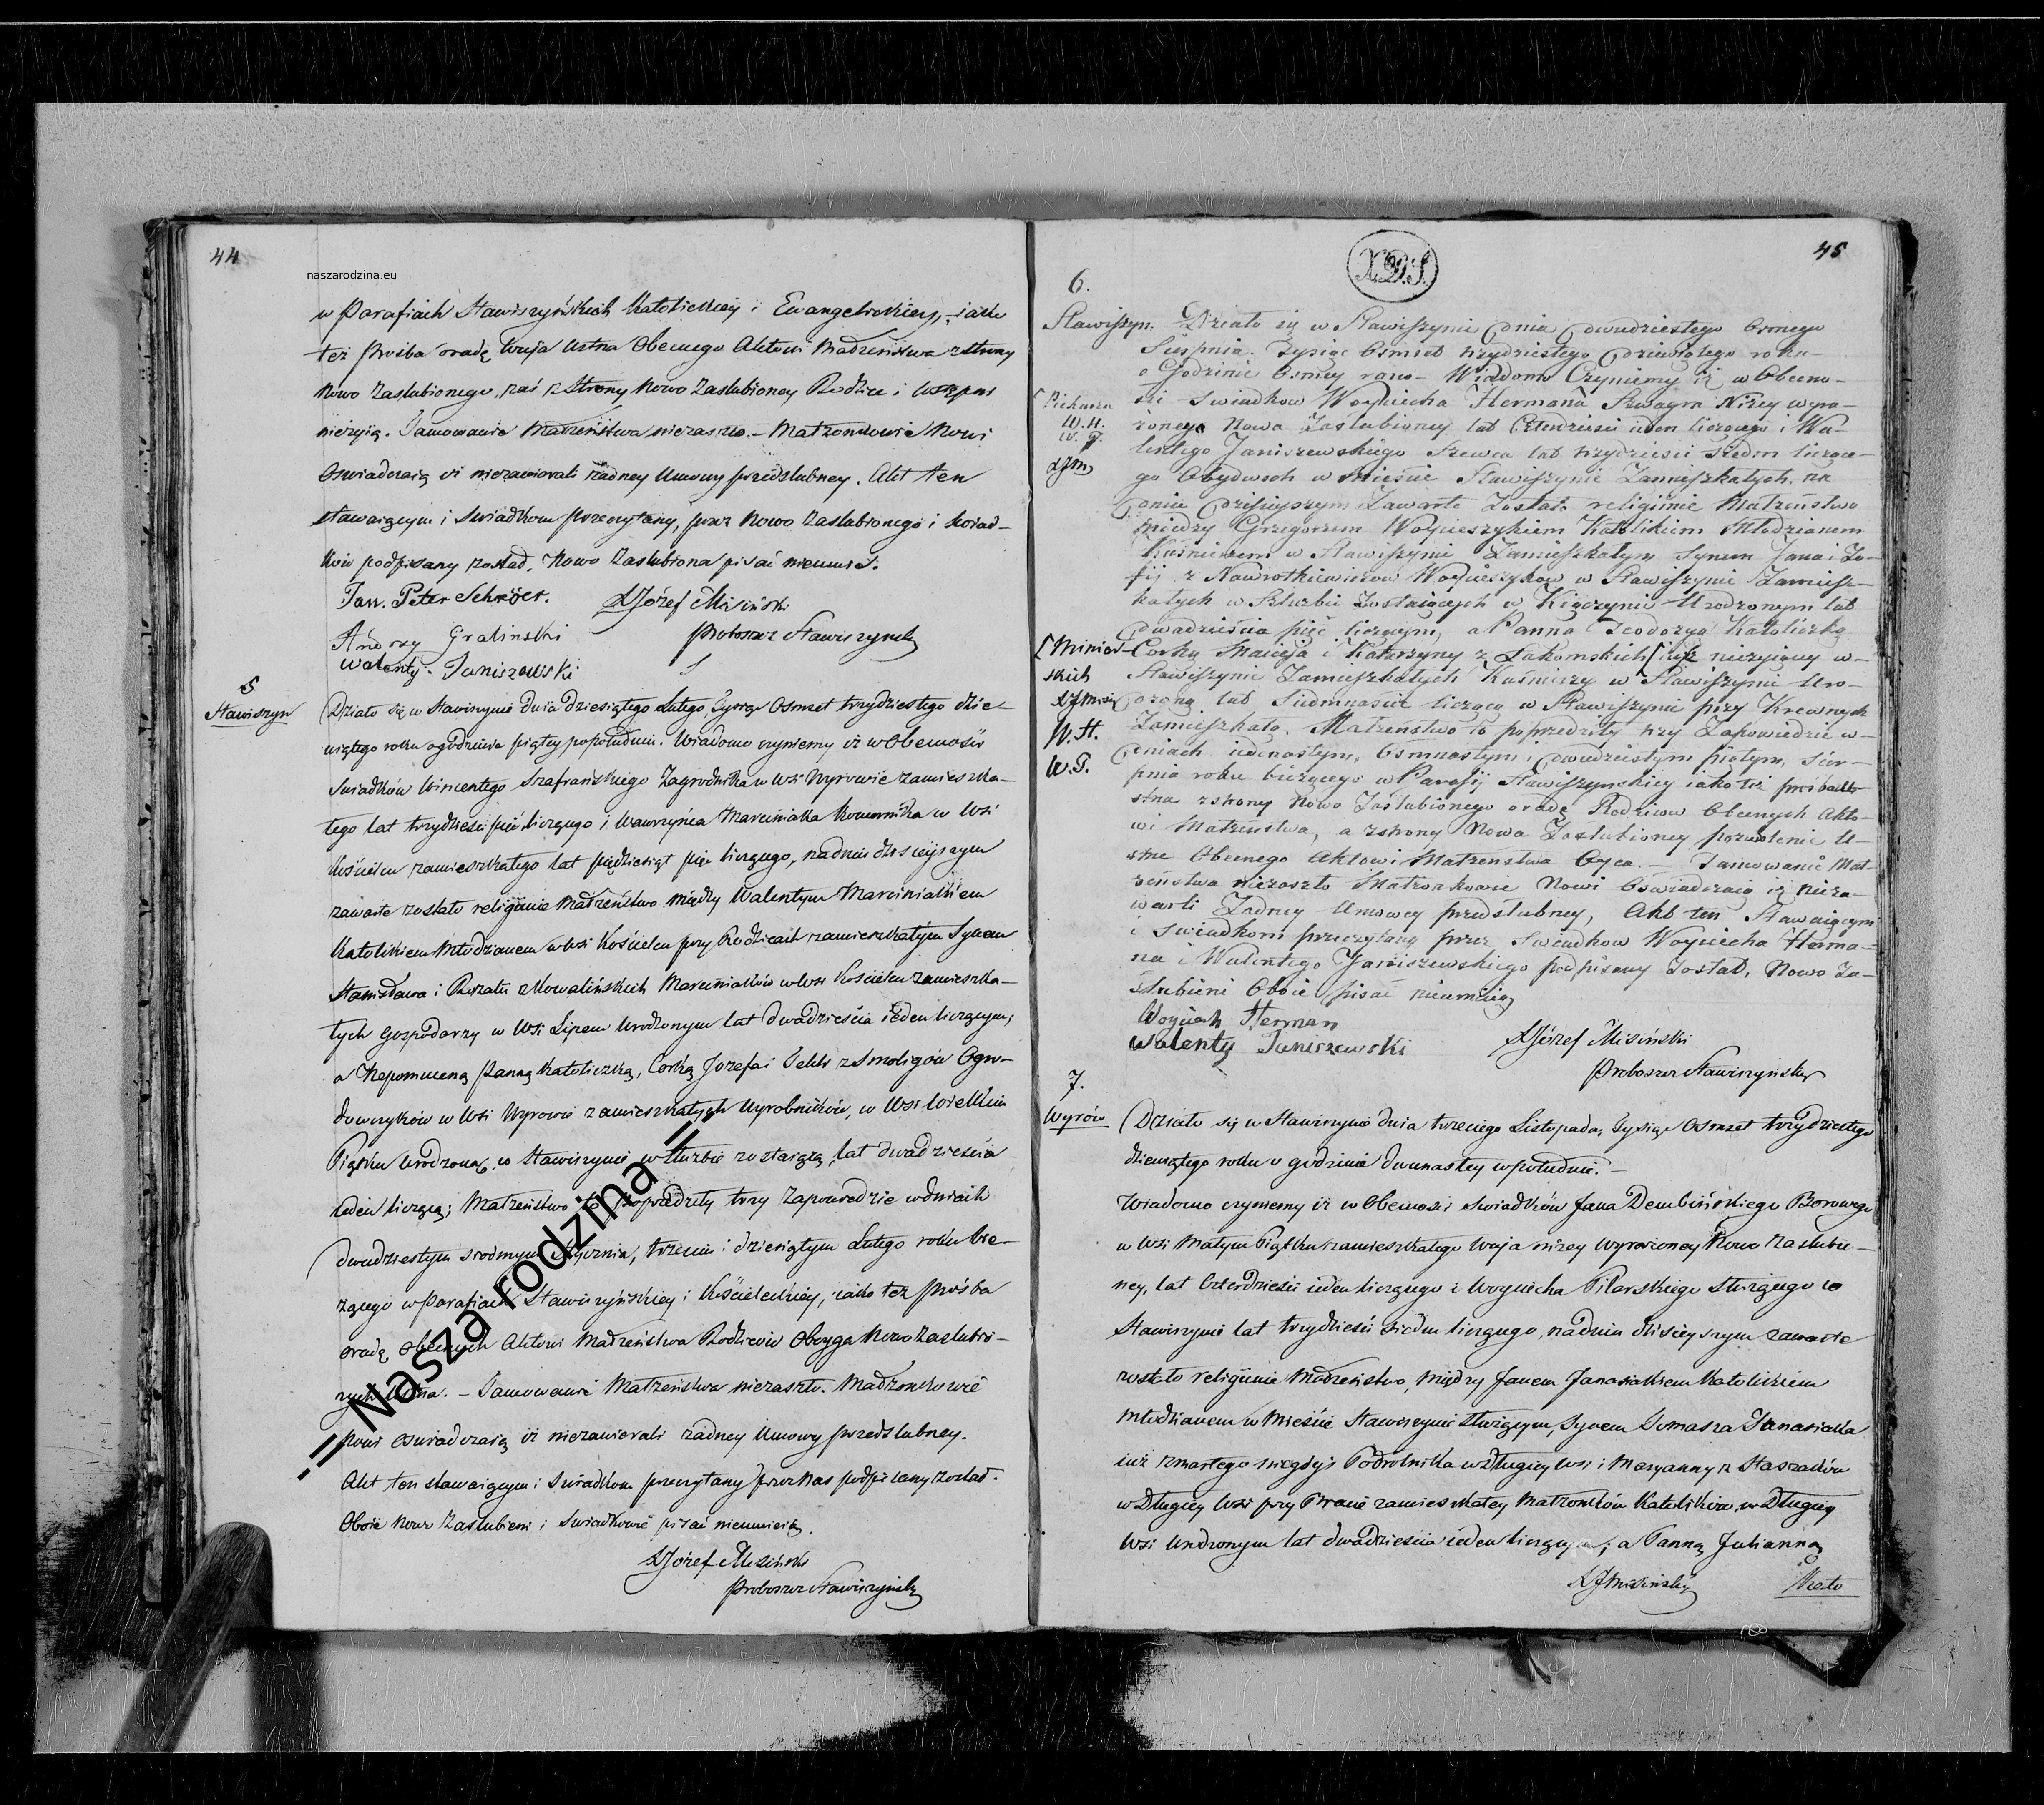 44
naszarodzina.eu
w Parafiach Stawiszyńskich Katolickiey i Ewangelickiey, iako
też prośba oradę Wuja ustna Obecnego Aktowi Małżeństwa z strony
Nowo Zaslubionego, zaś z Strony Nowo Zaslubioney Rodzice i
nieżyią. Tamowanie Małżeństwa niezaszło. – Małżonkowie Nowi
Oswiadczaią iż niezawierali żadney Umowy przedslubney. Akt ten
stawaiącym i Swiadkom przeczytany, przez Nowo Zaslubionego i swiad-
ków podpisany został, Nowo Zaslubiona pisać nieumie.
Jan. Peter Schröer. XJózef Misiński
Proboszcz Stawiszyński
Andrzy Gralinski
Walenty. Janiszewski
5
Stawiszyn
Działo się w Stawiszynie dnia dziesiątego Lutego Tysiąc Osmset trzydziestego dzie-
wiątego roku ogodzinie piątey popołudniu. Wiadomo czyniemy iż w Obecności
Swiadków Wincentego Szafrańskiego Zagrodnika w Wsi Wyrowie zamieszka-
łego lat trzydzieści pięć liczącego i Wawrzyńca Marciniaka Komornika w Wsi
Kościelcu zamieszkałego lat pięćdziesiąt pięć liczącego, na dniu dzisieyszym
zawarte zostało religiinie Małżeństwo między Walentym Marciniakiem
Katolikiem Młodzianem w Wsi Kościelcu przy Rodzicach zamieszkałym Synem
Stanisława i Rozalii z Kowalińskich Marciniaków w Wsi Kościelcu zamieszka-
łych Gospodarzy w Wsi Lipem Urodzonym lat dwadzieścia ieden liczącym;
a Nepomuceną Panną Katoliczką, Corką Jozefa i Tekli z Smoligów Ogro-
dowczyków w Wsi Wyrowie zamieszkałych Wyrobników, w Wsi Wielkim
Piątku Urodzoną, w Stawiszynie w Służbie zostaiącą, lat dwadzieścia
ieden liczącą; Małżeństwo to poprzedziły trzy Zapowiedzie w dniach
dwudziestym siodmym Stycznia, trzecim i dziesiątym Lutego roku bie-
żącego w Parafiach Stawiszyńskiey i Kościeleckiey, iako też prośba
oradę Obecnych Aktowi Małżeństwa Rodziców Oboyga Nowo Zaslubio-
nych Ustna. – Tamowanie Małżeństwa niezaszło. Małżonkowie
Nowi oswiadczaią iż niezawierali żadney Umowy przedslubney.
Akt ten stawaiącym i Swiadkom przeczytany przez Nas podpisany został.
Oboie Nowo Zaslubieni i Swiadkowie pisać nieumieią.
XJózef Misiński
Proboszcz Stawiszyński
-= Nasza rodzina =-
45
6.
Stawiszyn.
Działo się w Stawiszynie dnia dwudziestego Osmego
Sierpnia Tysiąc Osmset trzydziestego dziewiątego roku
o Godzinie Osmey rano – Wiadomo Czyniemy iż w Obecno-
ści Swiadkow Woyciecha Hermana Szwagra Niżey wyra-
[Piekarza
W.H.
W.J.
XJM
żoney Nowo Zaślubioney lat Czterdzieści ieden liczącego i Wa-
lentego Janiszewskiego Szewca lat trzydzieści siedm liczące-
go Obydwoch w Mieście Stawiszynie Zamieszkałych, na
dniu dzisieyszym Zawarte Zostało religiinie Małżeństwo
między Grzegorzem Woycieszykiem Katolikiem Młodzianem
Kuśnierzem w Stawiszynie Zamieszkałym Synem Jana i Zo-
fij z Nawrotkiewiczow Woycieszykow w Stawiszynie Zamiesz-
kałych w Służbie Zostaiących w Kiączynie Urodzonym lat
dwadzieścia pięć liczącym, a Panną Teodozyą Katoliczką
[Miniar-
skich
XJMisiń
W.H.
W.J.
Corką Macieja i Katarzyny z Łakomskich [iuż nieżyiącey w
Stawiszynie Zamieszkałych Kuśnierzy w Stawiszynie Uro-
dzoną lat Siedmnaście liczącą w Stawiszynie przy Krewnych
Zamieszkałą. Małżeństwo to poprzedziły trzy Zapowiedzie w
dniach iedenastym, Osmnastym i dwudziestym piątym Sier-
pnia roku bieżącego w Parafij Stawiszynskiey iako też prośba U-
stna z strony Nowo Zaślubionego oradę Rodziców Obecnych Akto-
wi Małżeństwa, a z strony Nowo Zaslubioney pozwolenie U-
stne Obecnego Aktowi Małżeństwa Oyca. – Tamowanie Mał-
żeństwa niezaszło Małżonkowie Nowi Oświadczaią iż nieza-
warli Żadney Umowey przedślubney, Akt ten Stawaiącym
i Swiadkom przeczytany przez Swiadkow Woyciecha Herma-
na i Walentego Janiszewskiego podpisany Został, Nowo Za-
ślubieni Oboie pisać nieumieią
Woyciech Herman
Walenty Janiszewski XJózef Misiński
Proboszcz Stawiszyński
7.
Wyrów
Działo się w Stawiszynie dnia trzeciego Listopada, Tysiąc Osmset trzydziestego
dziewiątego roku o godzinie dwunastey w południe. –
Wiadomo czyniemy iż w Obecności Swiadków Jana Dembińskiego Borowego
w Wsi Małym Piątku zamieszkałego Wuja niżey wyrażoney Nowo Zaslubio-
ney, lat Czterdzieści ieden liczącego i Woyciecha Pilarskiego służącego w
Stawiszynie lat trzydzieści siedm liczącego, na dniu dzisieyszym zawarte
zostało religiinie Małżeństwo, między Janem Janasiakiem Katolikiem
Młodzianem w Mieście Stawiszynie służącym, Synem Tomasza Janasiaka
iuż zmarłego niegdyś Półrolnika w Długiey Wsi i Maryanny z Staszaków
w Długiey Wsi przy Bracie zamieszkałey Małżonków Katolików, w Długiey
Wsi Urodzonym lat dwadzieścia ieden liczącym; a Panną Julianną
XJMisiński Verte